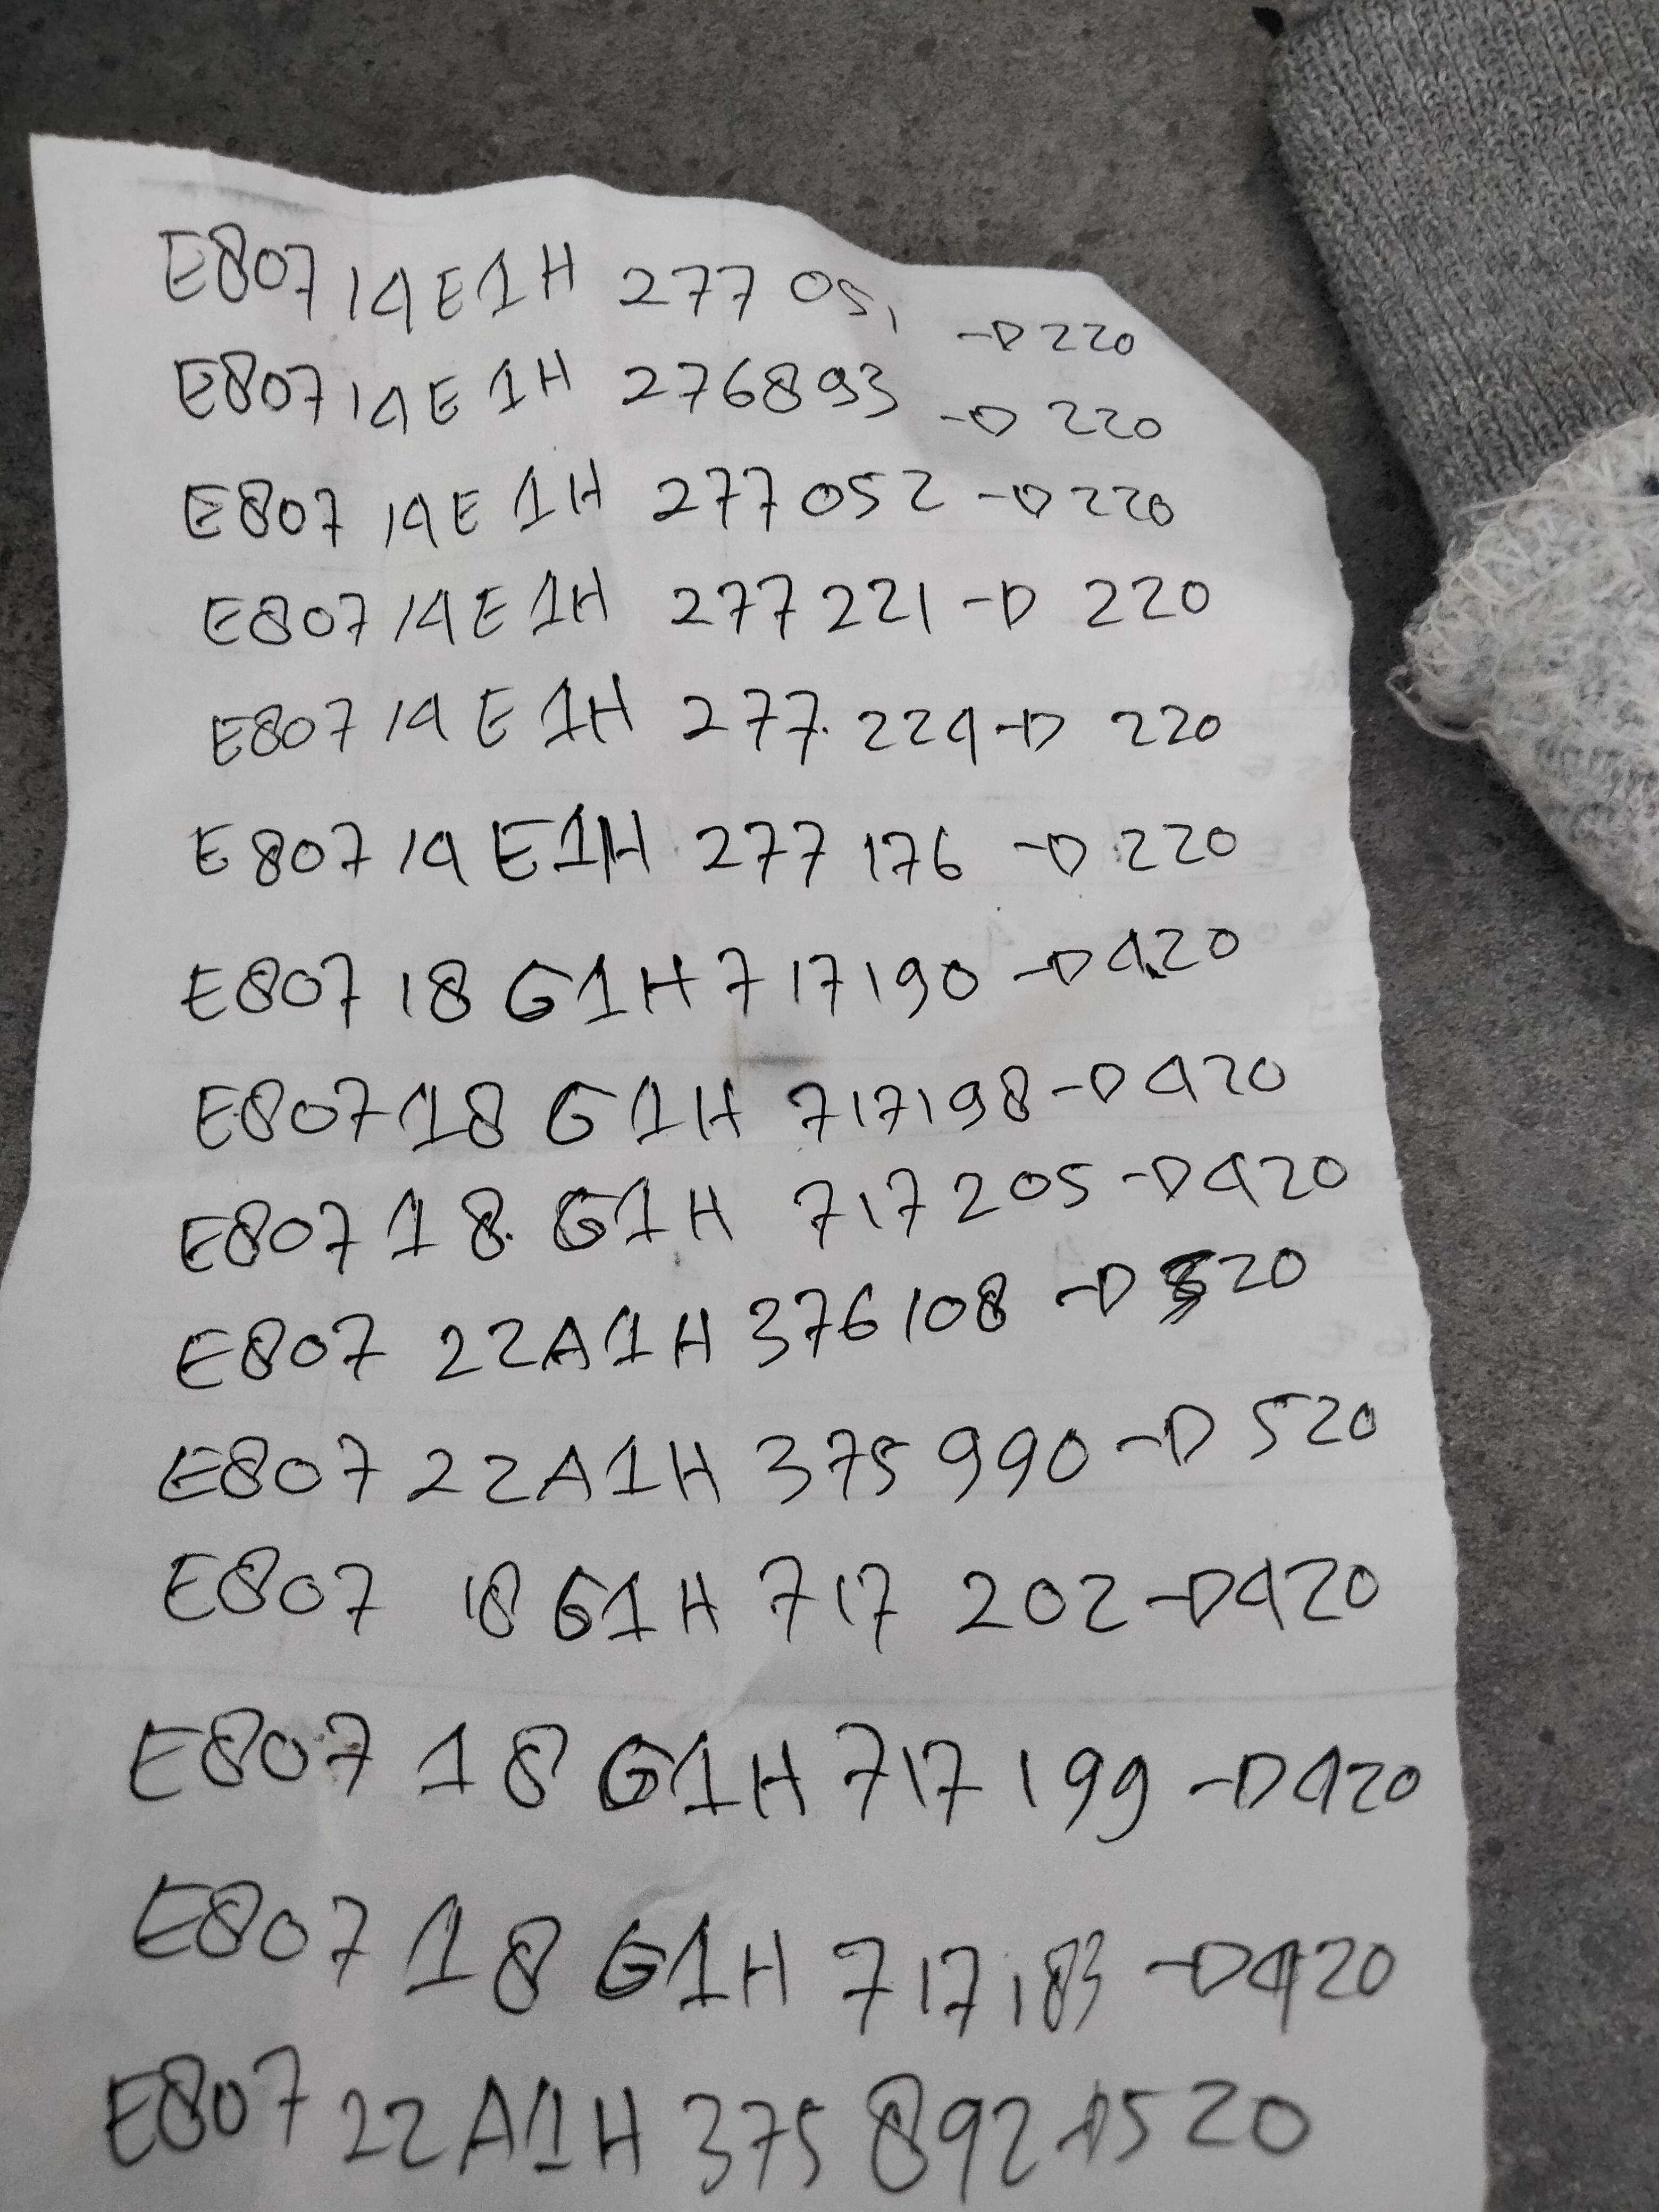 E807 14E1H 277 051 -D 220
E807 14E1H 276893 -D 220
E807 14E1H 277052 -D 220
E807 14E1H 277221 -D 220
E807 14E1H 277 224 -D 220
E807 14E1H 277 176 -D 220
E807 18 G1H 717190 -D 420
E807 18 G1H 717198 -D 420
E807 18 G1H 717205 -D 420
E807 22A1H 376108 -D 520
E807 22A1H 375990 -D 520
E807 18 G1H 717 202 -D 420
E807 18 G1H 717 199 -D 420
E807 18 G1H 717183 -D 420
E807 22A1H 375892 -D 520